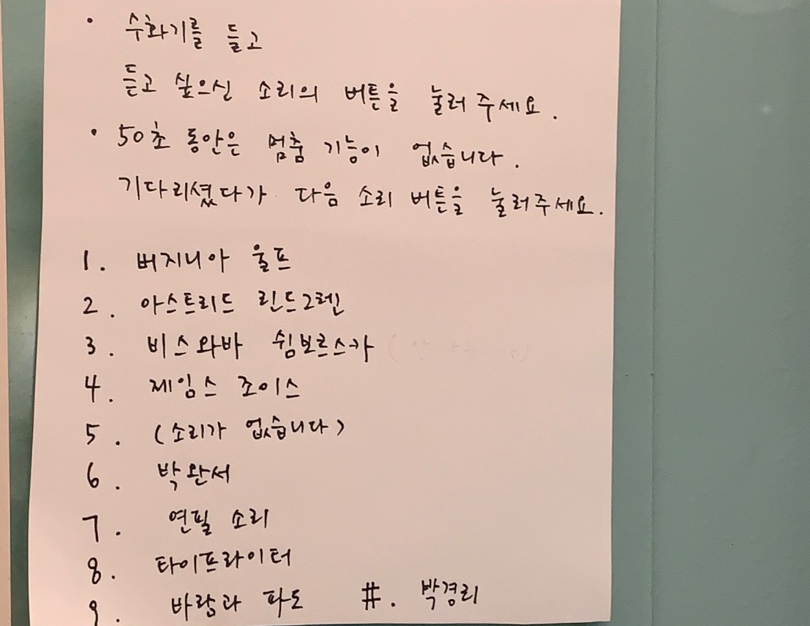 • 수화기를 들고
듣고 싶으신 소리의 버튼을 눌러 주세요.
• 50초 동안은 멈춤 기능이 없습니다.
기다리셨다가 다음 소리 버튼을 눌러주세요.
1. 버지니아 울프
2. 아스트리드 린드그렌
3. 비스와바 쉼보르스카
4. 제임스 조이스
5. (소리가 없습니다)
6. 박완서
7. 연필 소리
8. 타이프라이터
9. 바람과 파도 #. 박경리